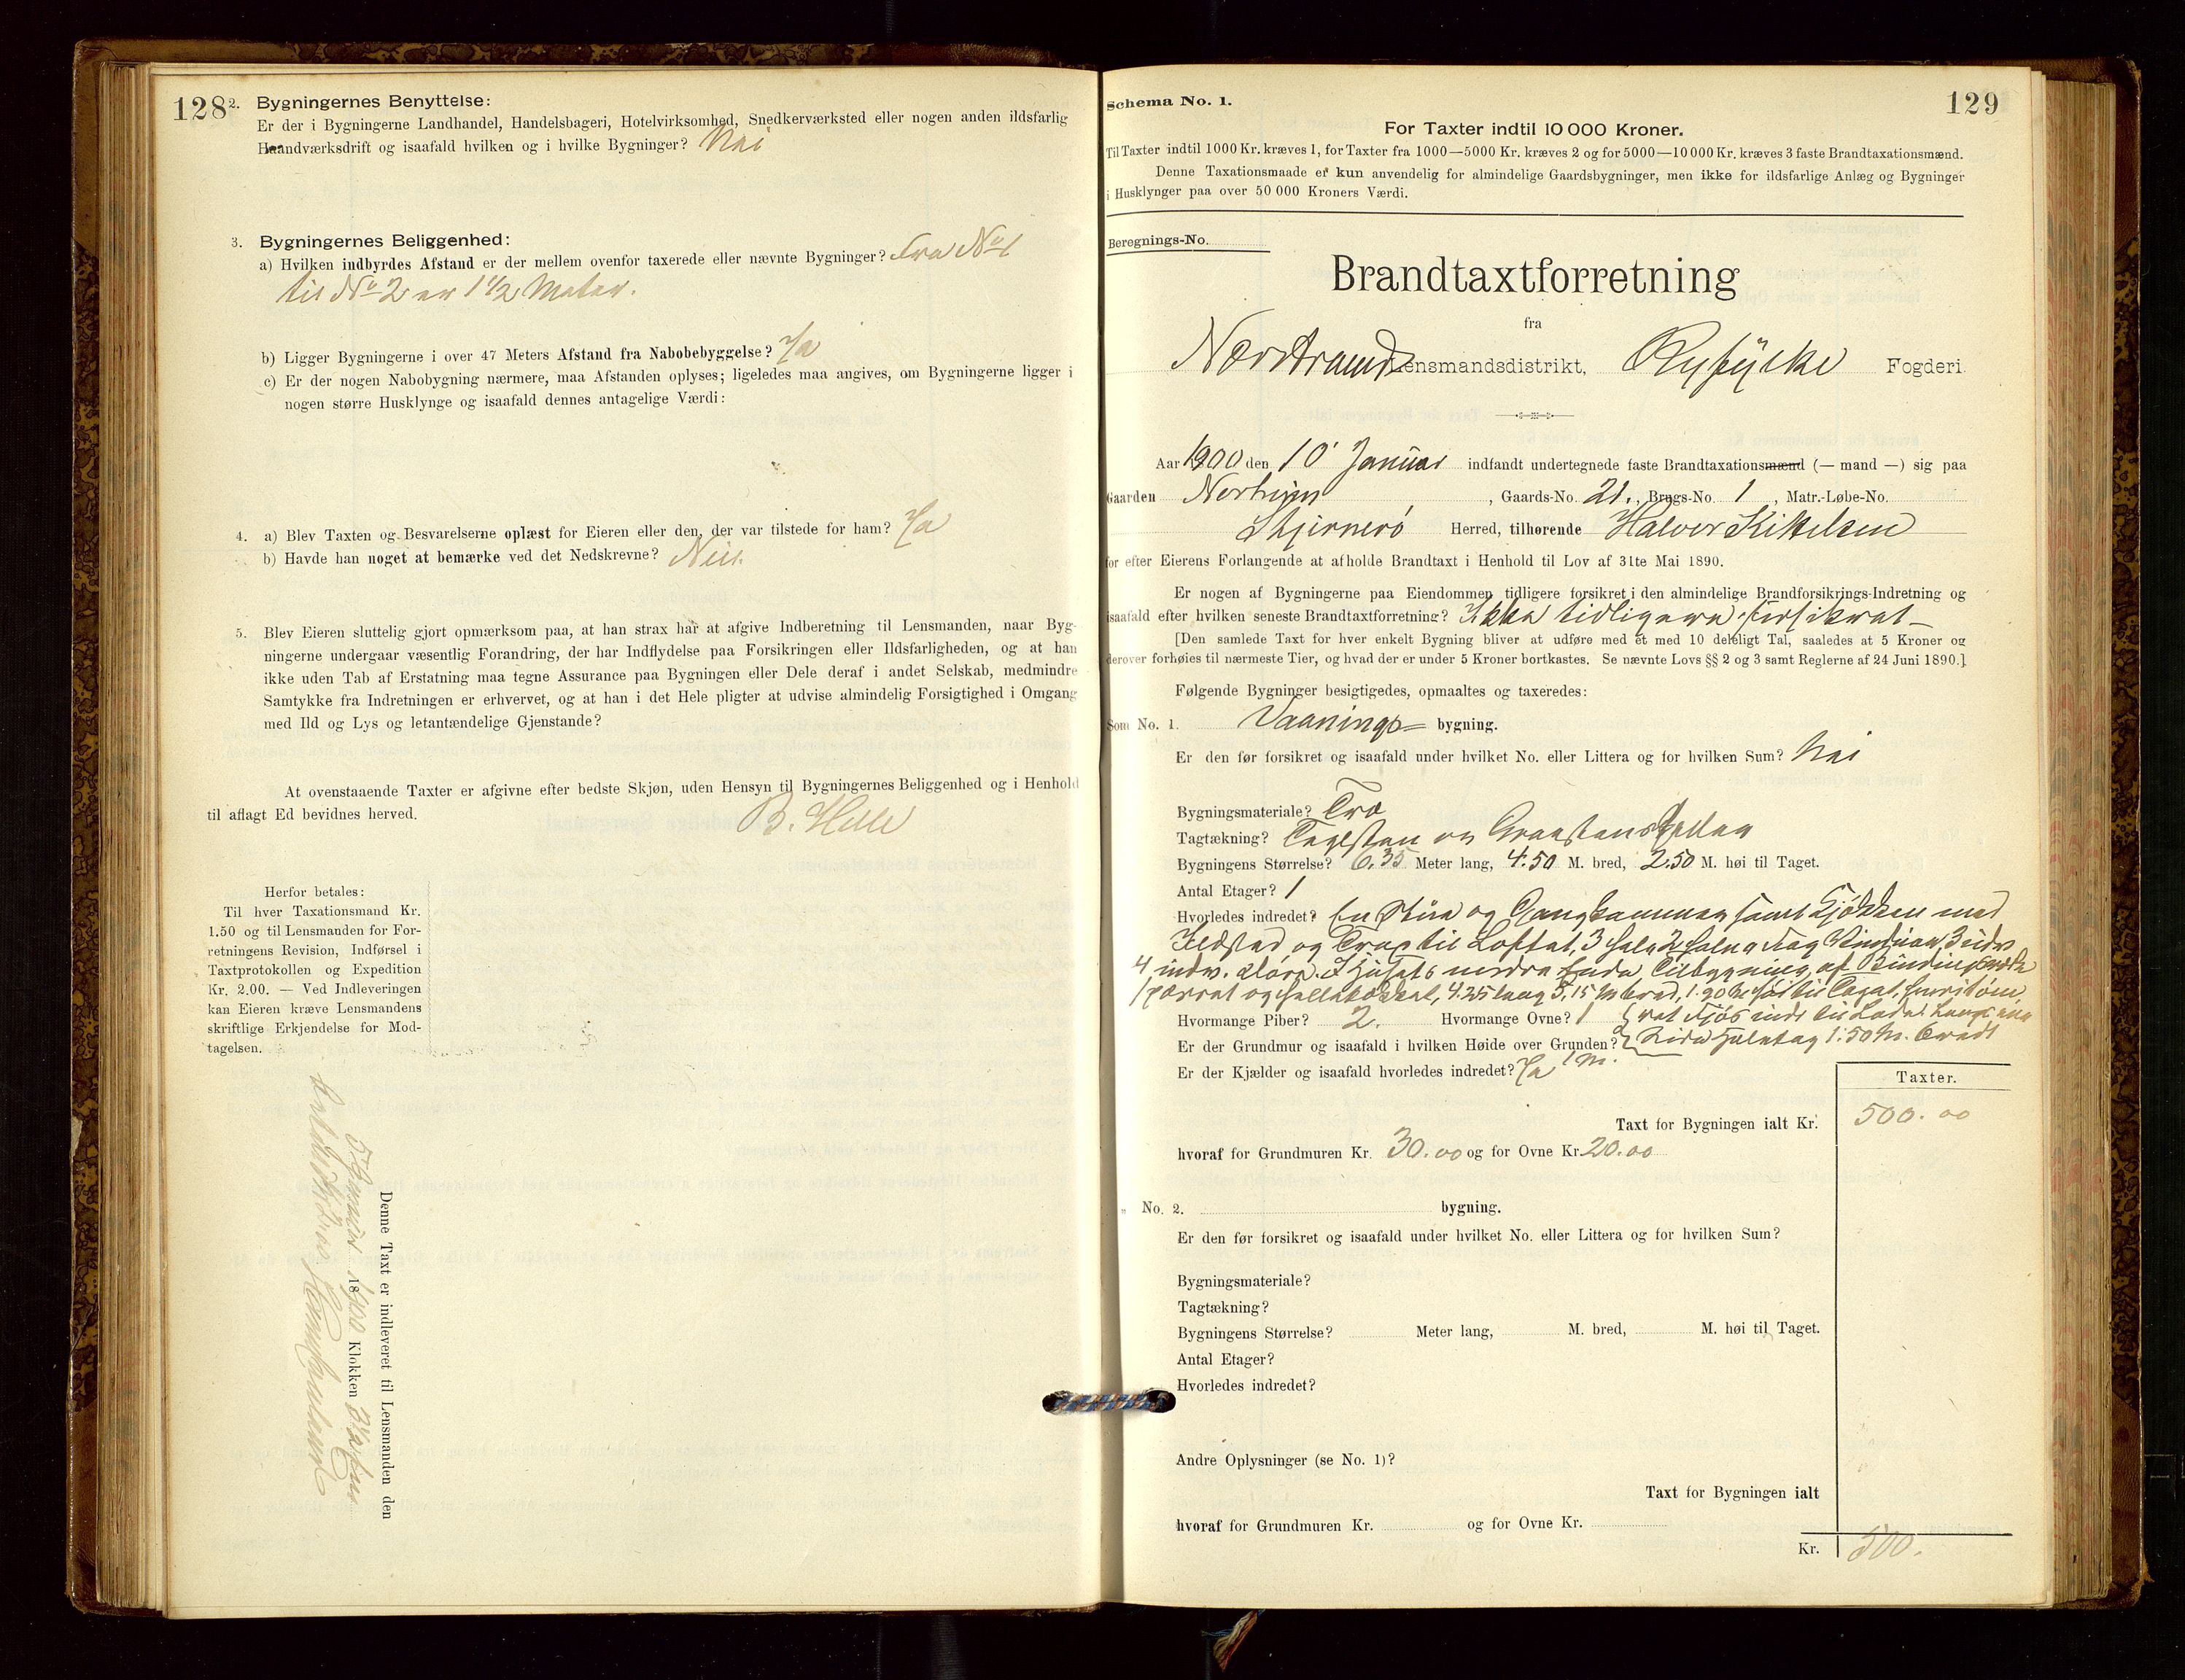 128
2. Bygningernes Benyttelse:
Er der i Bygningerne Landhandel, Handelsbageri, Hotelvirksomhed, Snedkerværksted eller nogen anden ildsfarlig
Haandværksdrift og isaafald hvilken og i hvilke Bygninger? Nei
3. Bygningernes Beliggenhed:
a) Hvilken indbyrdes Afstand er der mellem ovenfor taxerede eller nævnte Bygninger? Fra No 1
til No 2 er 1 1/2 Meter.
b) Ligger Bygningerne i over 47 Meters Afstand fra Nabobebyggelse? Ja
c) Er der nogen Nabobygning nærmere, maa Afstanden oplyses; ligeledes maa angives, om Bygningerne ligger i
nogen større Husklynge og isaafald dennes antagelige Værdi:
4. a) Blev Taxten og Besvarelserne oplæst for Eieren eller den, der var tilstede for ham? Ja
b) Havde han noget at bemærke ved det Nedskrevne? Nei.
5. Blev Eieren sluttelig gjort opmærksom paa, at han strax har at afgive Indberetning til Lensmanden, naar Byg-
ningerne undergaar væsentlig Forandring, der har Indflydelse paa Forsikringen eller Ildsfarligheden, og at han
ikke uden Tab af Erstatning maa tegne Assurance paa Bygningen eller Dele deraf i andet Selskab, medmindre
Samtykke fra Indretningen er erhvervet, og at han i det Hele pligter at udvise almindelig Forsigtighed i Omgang
med Ild og Lys og letantændelige Gjenstande?
At ovenstaaende Taxter er afgivne efter bedste Skjøn, uden Hensyn til Bygningernes Beliggenhed og i Henhold
til aflagt Ed bevidnes herved. B. Helle
Herfor betales:
Til hver Taxationsmand Kr.
1.50 og til Lensmanden for For-
retningens Revision, Indførsel i
Taxtprotokollen og Expedition
Kr. 2.00. — Ved Indleveringen
kan Eieren kræve Lensmandens
skriftlige Erkjendelse for Mod-
tagelsen.
Denne Taxt er indleveret til Lensmanden den
Januar 1900 Klokken 3 1/2
129
Schema No. 1.
For Taxter indtil 10 000 Kroner.
Til Taxter indtil 1000 Kr. kræves 1, for Taxter fra 1000—5000 Kr. kræves 2 og for 5000—10 000 Kr. kræves 3 faste Brandtaxationsmænd.
Denne Taxationsmaade er kun anvendelig for almindelige Gaardsbygninger, men ikke for ildsfarlige Anlæg og Bygninger
i Husklynger paa over 50 000 Kroners Værdi.
Beregnings-No.
Brandtaxtforretning
fra
Nerstrand Lensmandsdistrikt, Ryfylke Fogderi
Aar 1900 den 10' Januar indfandt undertegnede faste Brandtaxationsmænd (— mand —) sig paa
Gaarden Norheim, Gaards-No. 21., Brugs-No. 1, Matr.-Løbe-No.
Skjernerö Herred, tilhørende Halvor Kittelsen
for efter Eierens Forlangende at afholde Brandtaxt i Henhold til Lov af 31te Mai 1890.
Er nogen af Bygningerne paa Eiendommen tidligere forsikret i den almindelige Brandforsikrings-Indretning og
isaafald efter hvilken seneste Brandtaxtforretning? Ikke tidligere forsikret —
[Den samlede Taxt for hver enkelt Bygning bliver at udføre med et med 10 deleligt Tal, saaledes at 5 Kroner og
derover forhøies til nærmeste Tier, og hvad der er under 5 Kroner bortkastes. Se nævnte Lovs §§ 2 og 3 samt Reglerne af 24 Juni 1890.]
Følgende Bygninger besigtigedes, opmaaltes og taxeredes:
Som No. 1. Vaanings= bygning.
Er den før forsikret og isaafald under hvilket No. eller Littera og for hvilken Sum? Nei
Bygningsmateriale? Træ
Tagtækning? Teglsten og Graastenshellar
Bygningens Størrelse? 6.35 Meter lang, 4.50 M. bred, 2.50 M. høi til Taget.
Antal Etager? 1
Hvorledes indredet? En Stue og Gangkammer samt Kjökken med
Ildsted og Trap til Loftet, 3 hele 2 halve Fag Vinduer, 3 udv
4 indv. Döre. I Husets nordre Ende Tilbygning af Bindingsværk
4.25 lang 5.15 M bred, 1.90 M höi til Taget.
Hvormange Piber? 2. Hvormange Ovne? 1
Er der Grundmur og isaafald i hvilken Høide over Grunden? 1 M.
1.50 M. bredt
Er der Kjælder og isaafald hvorledes indredet? Ja
Taxter.
Taxt for Bygningen ialt Kr. 500.00
hvoraf for Grundmuren Kr. 30.00 og for Ovne Kr. 20.00
„ No. 2. bygning.
Er den før forsikret og isaafald under hvilket No. eller Littera og for hvilken Sum?
Bygningsmateriale?
Tagtækning?
Bygningens Størrelse? Meter lang, M. bred, M. høi til Taget.
Antal Etager?
Hvorledes indredet?
Andre Oplysninger (se No. 1)?
Taxt for Bygningen ialt
hvoraf for Grundmuren Kr. og for Ovne Kr.
Kr. 500.